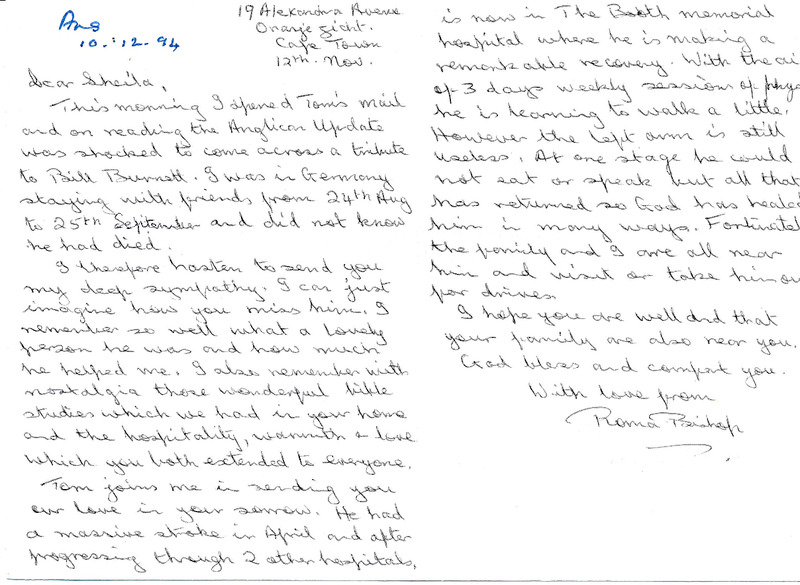 Ans
10.:12.94
19 Alexandra Avenue
Oranje Zicht.
Cape Town
12th. Nov.
Dear Sheila,
This morning I opened Tom's mail
and on reading the Anglican Update
was shocked to come across a tribute
to Bill Burnett. I was in Germany
staying with friends from 24th Aug
to 25th September and did not know
he had died.
I therefore hasten to send you
my deep sympathy. I can just
imagine how you miss him. I
remember so well what a lovely
person he was and how much
he helped me. I also remember with
nostalgia those wonderful bible
studies which we had in your home
and the hospitality, warmth & love
which you both extended to everyone.
Tom joins me in sending you
our love in your sorrow. He had
a massive stroke in April and after
progressing through 2 other hospitals,
is now in The Booth memorial
hospital where he is making a
remarkable recovery. With the ai
of 3 days weekly sessions of physo
he is learning to walk a little.
However the left arm is still
useless. At one stage he could
not eat or speak but all that
has returned so God has healed
him in many ways. Fortunatel
the family and I are all near
him and visit or take him ou
for drives.
I hope you are well and that
your family are also near you.
God bless and comfort you.
With love from
Roma Bishop